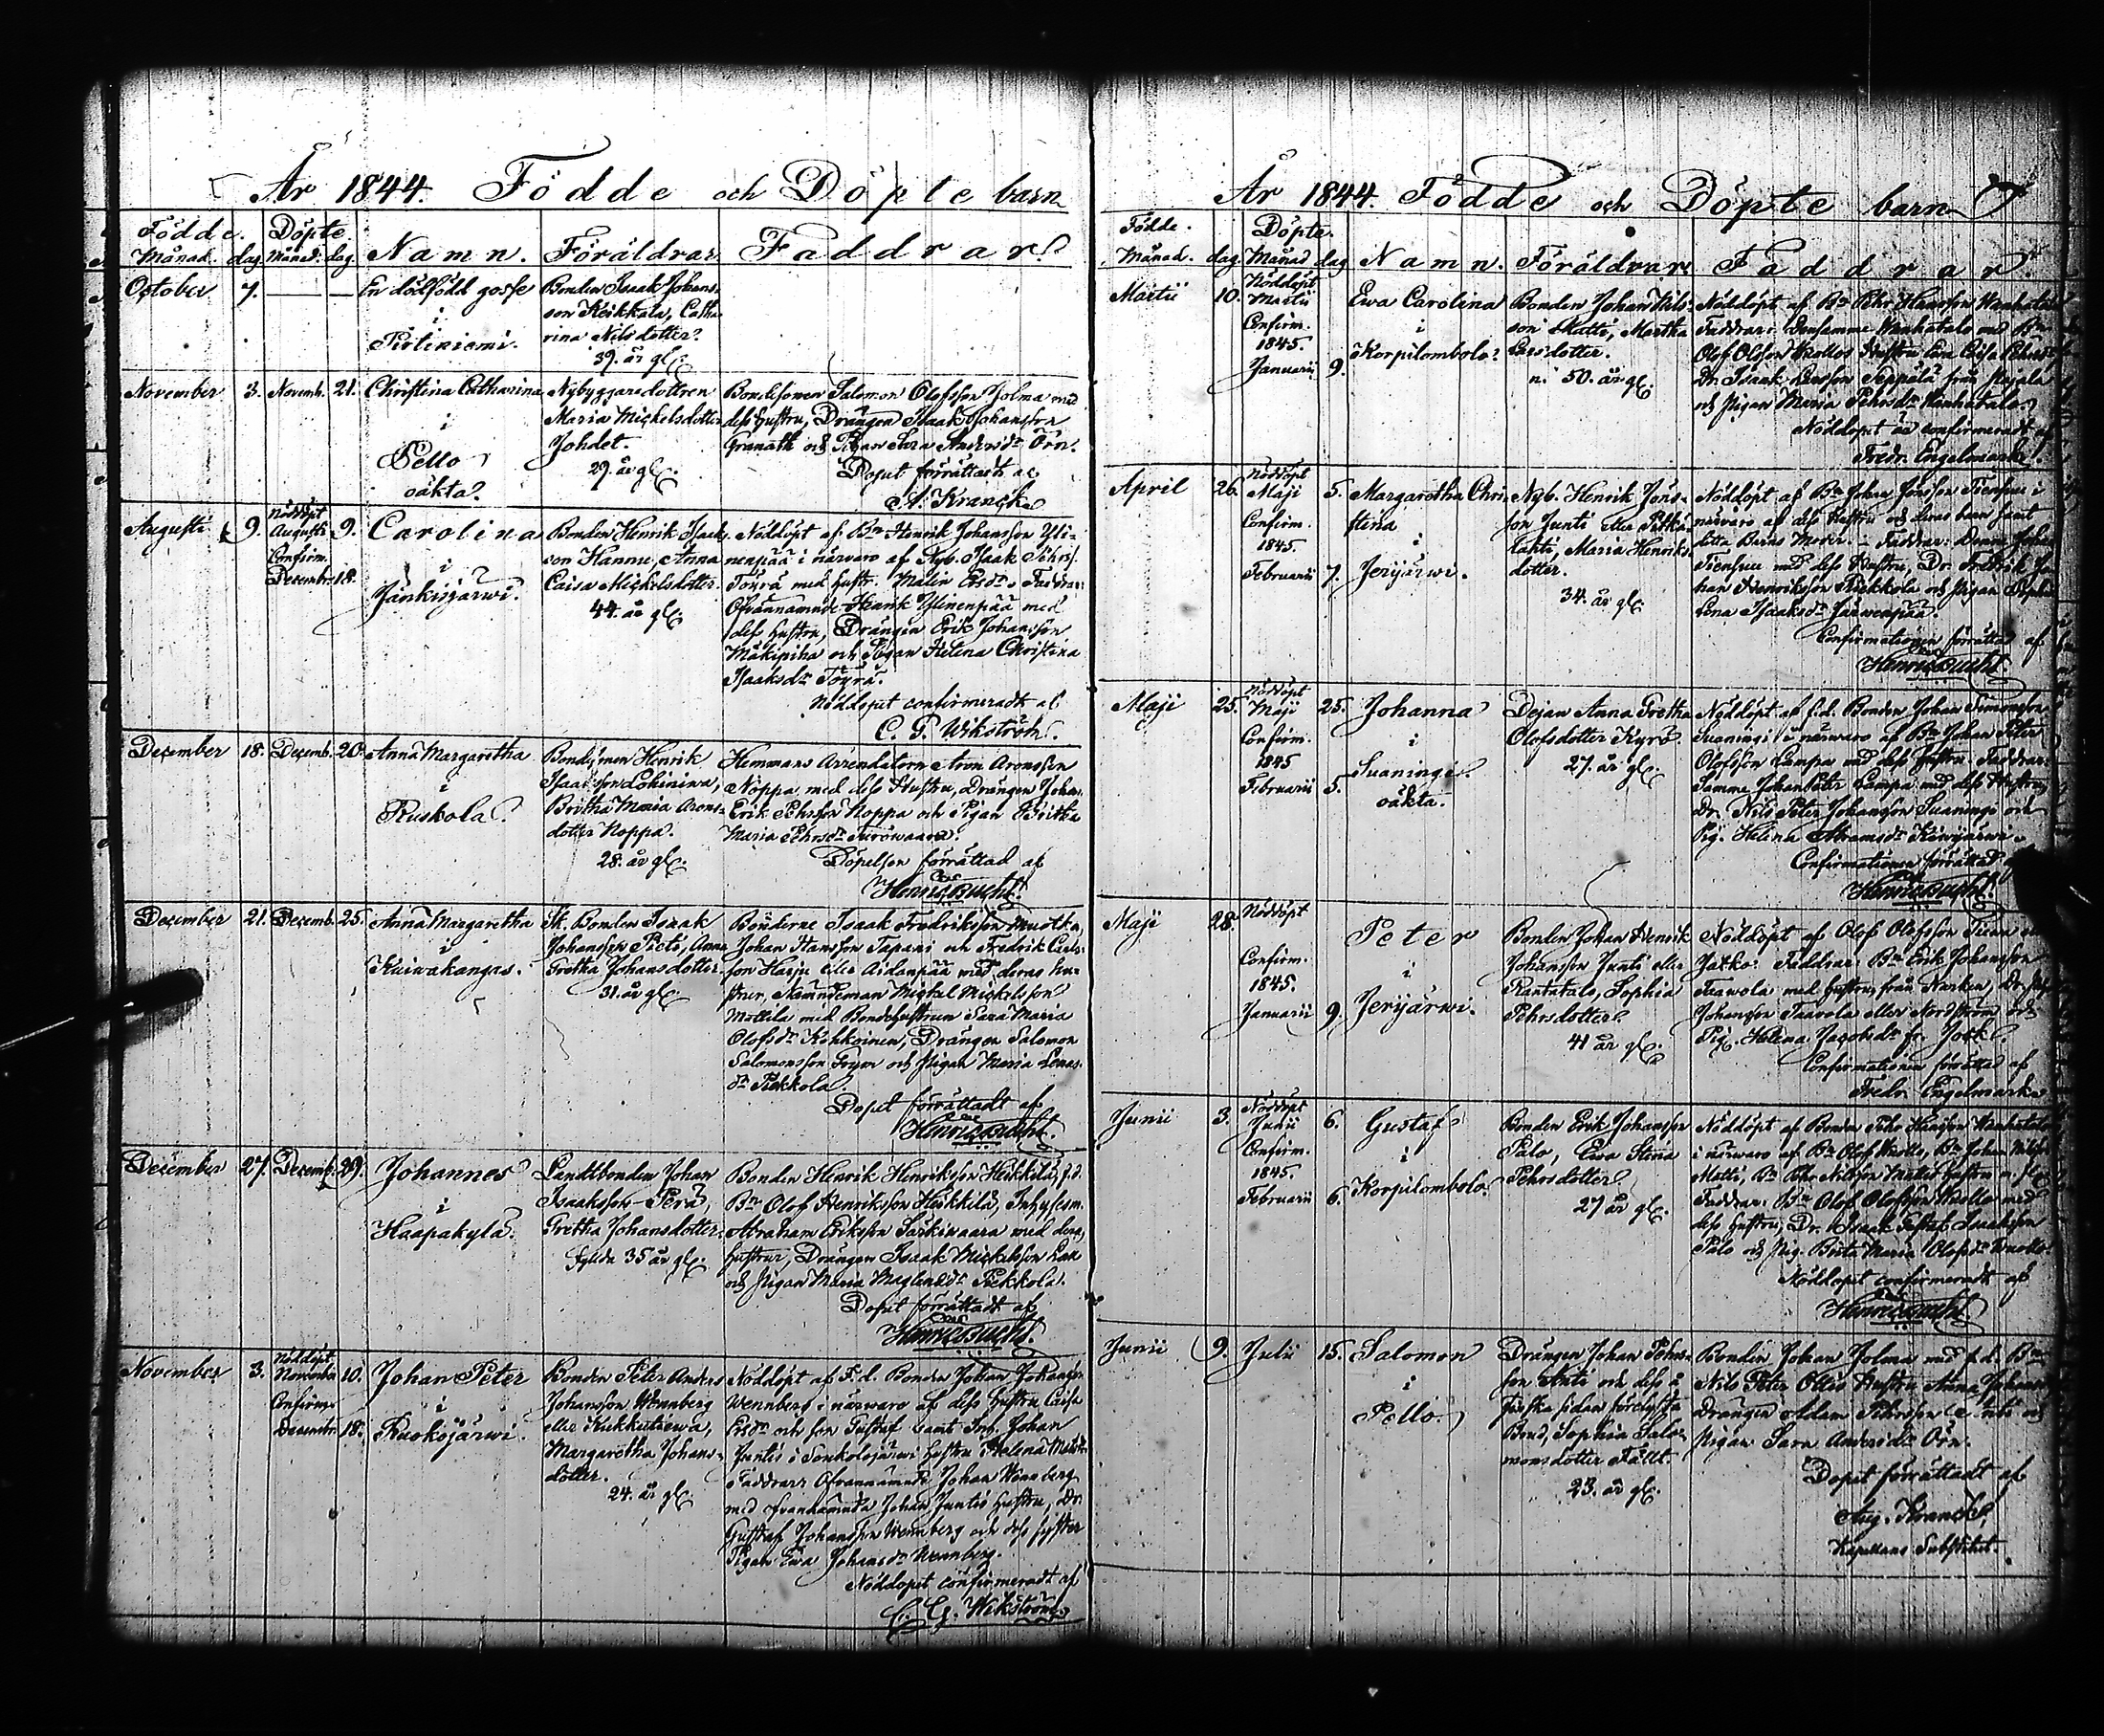 År 1844. Födde och Döpte barn
Födde. Döpte. Namn. Föräldrar. Faddrar.
Månad. dag. Månad. dag.
October 7. — —
En dödfödd gosse
i
Bonden Isaak Johans-
son Keikkala, Catha-
rina Nilsdotter.
39. år gl.
November 3. Novemb. 21.
Christina Catharina
i
Pello
oäkta.
Nybyggaredottren
Maria Mickelsdotter
Johdet.
29. år gl.
Bondesonen Salomon Olofsson Jolma med
dess hustru, Drängen Isaak Johansson
Granath och Pigan Andersdr Örn.
Dopet förrättadt af
A. Kranck
Augusti 9.
Nöddöpt
Augusti 9.
Confirm.
Decembr. 18.
Carolina
i
Jänkisjärwi.
Bonden Henrik Isaks-
son Hannu, Anna
Caisa Mickelsdotter.
44. år gl.
Nöddöpt af Bn Henrik Johansson Yli-
nenpää i närwaro af Nyb. Isaak
Töyrä med hustr. Malin Ersdr. Faddrar:
Ofvannämnde Henrik Ylinenpää med
dess hustru, Drängen Erik Johansson
Mäkipiha och Pigan Helena Christina
Isaaksdr Töyrä.
Nöddopet confirmeradt af
C. G. Wikström.
December 18. Decemb. 20.
Anna Margaretha
i
Ruskola
Henrik
Isaaksson Lohiniwa,
Britha Maria Arons-
dotter Noppa.
28. år gl.
Hemmans Arrendatorn Aron Aronsson
Noppa med dess Hustru, Drängen Johan
Erik Pehrsson Noppa och Pigan Britha
Maria Pehrsdr
Döpelsen förrättad af
Henric Bucht
December 21. Decemb. 25.
Anna Margaretha
i
Kuiwakangas.
Bonden Isaak
Johansson Anna
Gretha Johansdotter.
31. år gl.
Bönderne Isaak Fredriksson Muotka,
Johan Hansson Tapani och Fredrik Carls-
son Harju eller Aidanpää med deras hu-
strur, Nämndeman Michel Michelsson
Mottila med Bondehustrun Sara Maria
Olofsdr Kohkoinen, Drängen Salomon
Salomonsson och Pigan Maria
dr Pekkola.
Dopet förrättadt af
Henric Bucht.
December 27. Decemb. 29.
Johannes
i
Haapakylä.
Landtbonden Johan
Isaaksson Perä,
Gretha Johansdotter.
fyllda 35 år gl.
Bonden Henrik Henriksson Heikkilä, f.d.
Bn Olof Henriksson Heikkilä, Inhysesm.
Abraham Eriksson Särkiwaara med deras
hustrur, Drängen Isaak Mickelsson
och Pigan Maria Pekkola.
Dopet förrättadt af
Henric Bucht.
November 3.
Nöddöpt
November 10.
Confirm.
December 18.
Johan Peter
i
Ruokojärwi.
Bonden Peter Anders
Johansson Wennberg
eller
Margaretha Johans-
dotter.
24. år gl.
Nöddöpt af F.d. Bonden Johan Johansson
Wennberg i närwaro af dess Hustru Caisa
Ersdr och son Gustaf samt Johan
Juntis i hustru Helena
Faddrar: Ofvannämnde Johan Wennberg
med Johan Juntis hustru, Dr.
Gustaf Johansson Wennberg och dess syster
Pigan Ewa Johansdr Wennberg.
Nöddopet confirmeradt af
C. G. Wikström.
År 1844. Födde och Döpte barn
Födde. Döpte.
Månad. dag. Månad dag Namn. Föräldrar. Faddrar.
Martii 10.
Nöddöpt
Martii
Confirm.
1845.
Januarii 9.
Ewa Carolina
i
Korpilombolo.
Bonden Johan Nils-
son Matti, Martha
Larsdotter.
n. 50. år gl.
Nöddöpt af Bn Pehr Hansson Wanhatalo
Faddrar: Densamme Wanhatalo med Bn
Olof Olofson Hustru
Dr. Isaak Larsson Seppälä från Pajala
och Pigan Maria Pehrsdr Wanhatalo.
Nöddopet är confirmeradt af
Fredr. Engelmark.
April 26.
Nöddöpt
Maji 5.
Confirm.
1845.
Februarii 7.
Margaretha Chri-
stina
i
Jerijärwi.
Nyb. Henrik Jöns-
son Junti eller Pitkä-
lahti, Maria Henriks-
dotter.
34. år gl.
Nöddöpt af Bn Johan Jönsson Tiensuu i
närvaro af dess Hustru och deras barn samt
detta Barns Moder. – Faddrar: Johan
Tiensuu med dess Hustru, Dr. Fredrik Jo-
han Henriksson och Pigan Sophia
Lena Isaaksdr Järwenpää.
Confirmationen förrättad af
Henric Bucht
Maji 25.
Nöddöpt
Maji 25.
Confirm.
1845
Februarii 5.
Johanna
i
Suaningi.
oäkta.
Dejan Anna Gretha
Olofsdotter Kyrö.
27. år gl.
Nöddöpt af f.d. Bonden Johan Simonsson
Suaningi i närwaro af Bn Johan Peter
Olofsson Lampa med dess hustru. Faddrar:
Samme Johan Peter Lampa med dess Hustru,
Dr. Nils Peter Johansson Suaningi och
Pig. Helena Abramsdr
Confirmationen förrättad af
Henric Bucht
Maji 28.
Nöddöpt
Confirm.
1845.
Januarii 9.
Peter
i
Jerijärwi.
Bonden Johan Henrik
Johansson Junti eller
Rantatalo, Sophia
Pehrsdotter.
41 år gl.
Nöddöpt af Olof Olofsson
Faddrar: Bn Erik Johansson
Taawola med hustru från Narken, Dr.
Johansson Taavola eller Nordström och
Pig. Helena Jacobsdr
Confirmationen förrättad af
Fredr. Engelmark
Junii 3.
Nöddöpt
Junii 6.
Confirm.
1845.
Februarii 6.
Gustaf
i
Korpilombolo.
Bonden Erik Johansson
Palo, Ewa Stina
Pehrsdotter
27 år gl.
Nöddöpt af Bonden Pehr Hansson Wanhatalo
i närwaro af Bn Olof Bn Johan Nilsson
Matti, Bn Pehr Nilsson Mattis hustru m. fl.
Faddrar: Bn Olof Olofsson med
dess hustru, Dr. Isaak Gustaf Isaaksson
Palo och Pig. Brita Maria Olofsdr
Nöddopet confirmeradt af
Henric Bucht
Junii 9. Julii 15.
Salomon
i
Pello.
Drängen Johan Pehrs-
son Anti och dess å
Finska sidan förelysta
Brud, Sophia Salo-
monsdotter Fält.
23. år gl.
Bonden Johan Jolma med f.d. Bn
Nils Peter Ollis Hustru Anna
Drängen Adam Pehrsson Anti och
Pigan Sara Andersdr Örn.
Dopet förrättadt af
Aug. Kranck,
Kapellans Substitut.